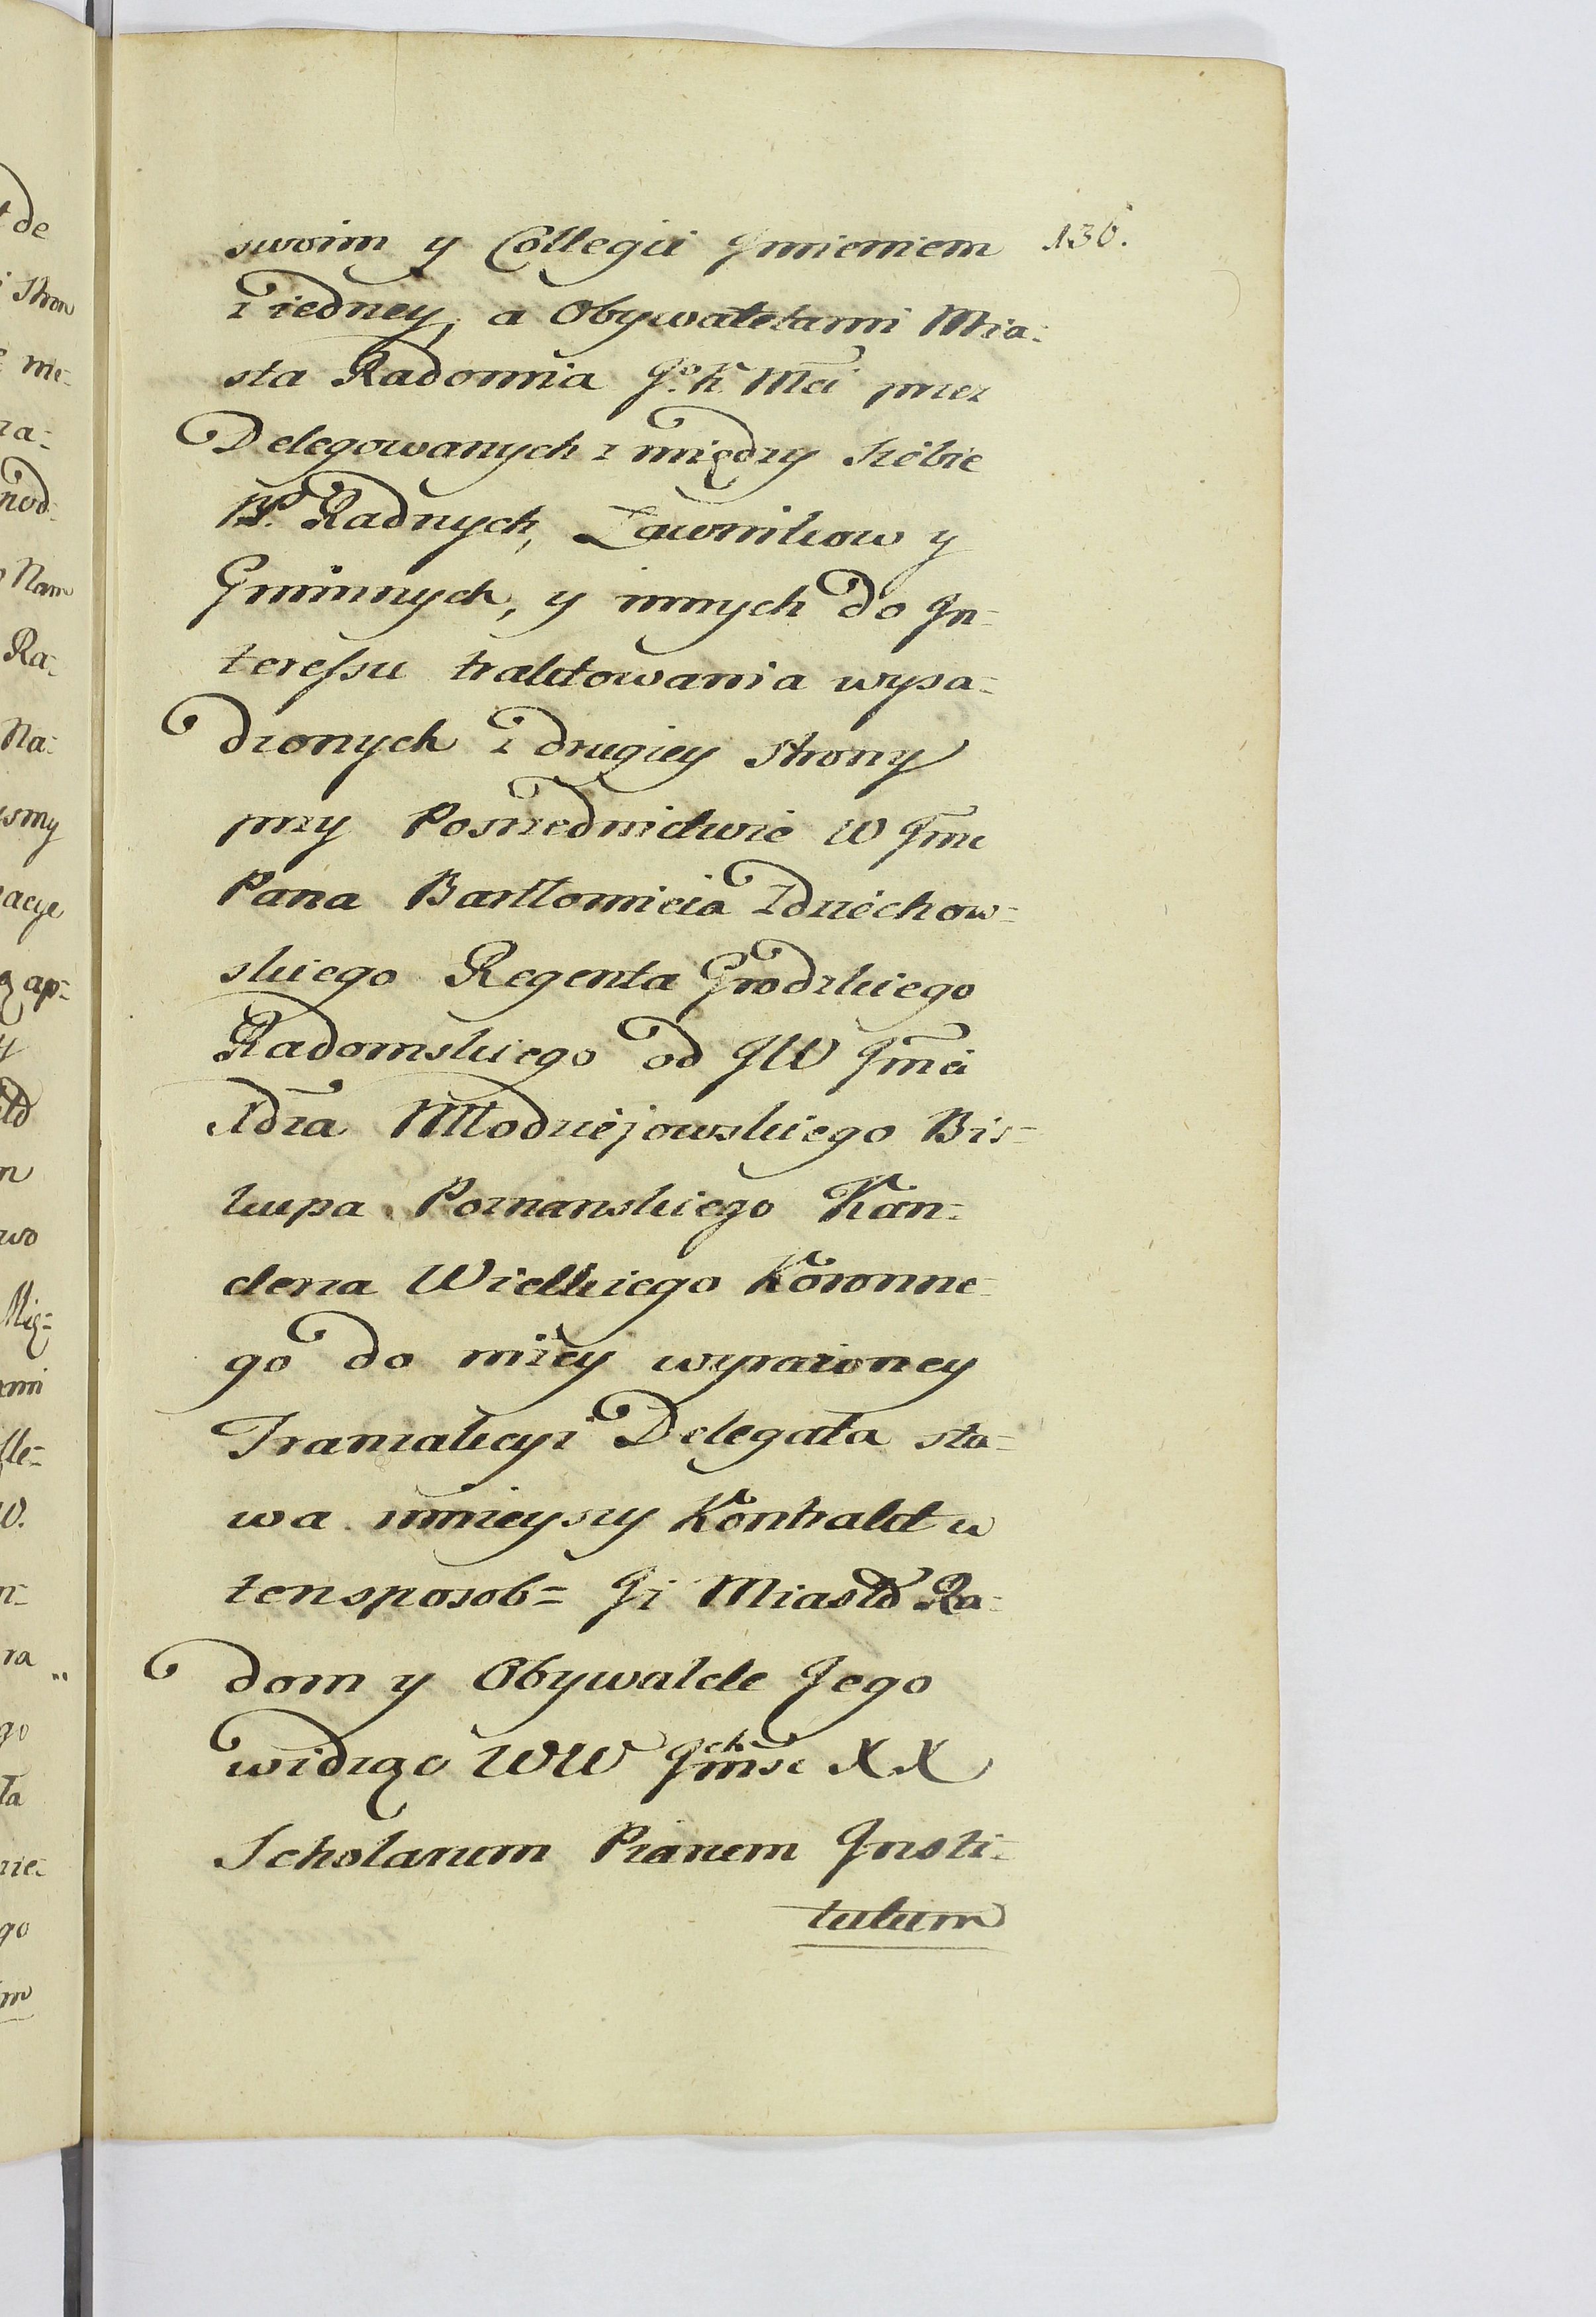 136.
swoim y Collegii Jmieniem
z iedney, a Obywatelami Mia=
sta Radomia Jo. K. Mci przez
Delegowanych z między siebie
PP. Radnych, Ławnikow y
Gminnych, y innych do In=
teressu traktowania wysa=
dzonych z drugiey strony
przy Posrzednictwie W Jmc
Pana Bartłomieia Zdziechow=
skiego Regenta Grodzkiego
Radomskiego od JW Jmci
Xdza Młodziejowskiego Bis=
kupa Poznanskiego Kan=
clerza Wielkiego Koronne=
go do niżey wyrażoney
Tranzakcyi Delegata sta=
wa ninieyszy Kontrakt w
ten sposob= Jż Miasto Ra=
dom y Obywatele Jego
widząc WW Jchmsc XX
Scholarum Piarum Insti=
tutum
de
stron
me=
za=
nod=
Nam
Ra=
Na=
ismy
acye
ap=
Mię=
ami
W.
ra
go
ta
nie=
go